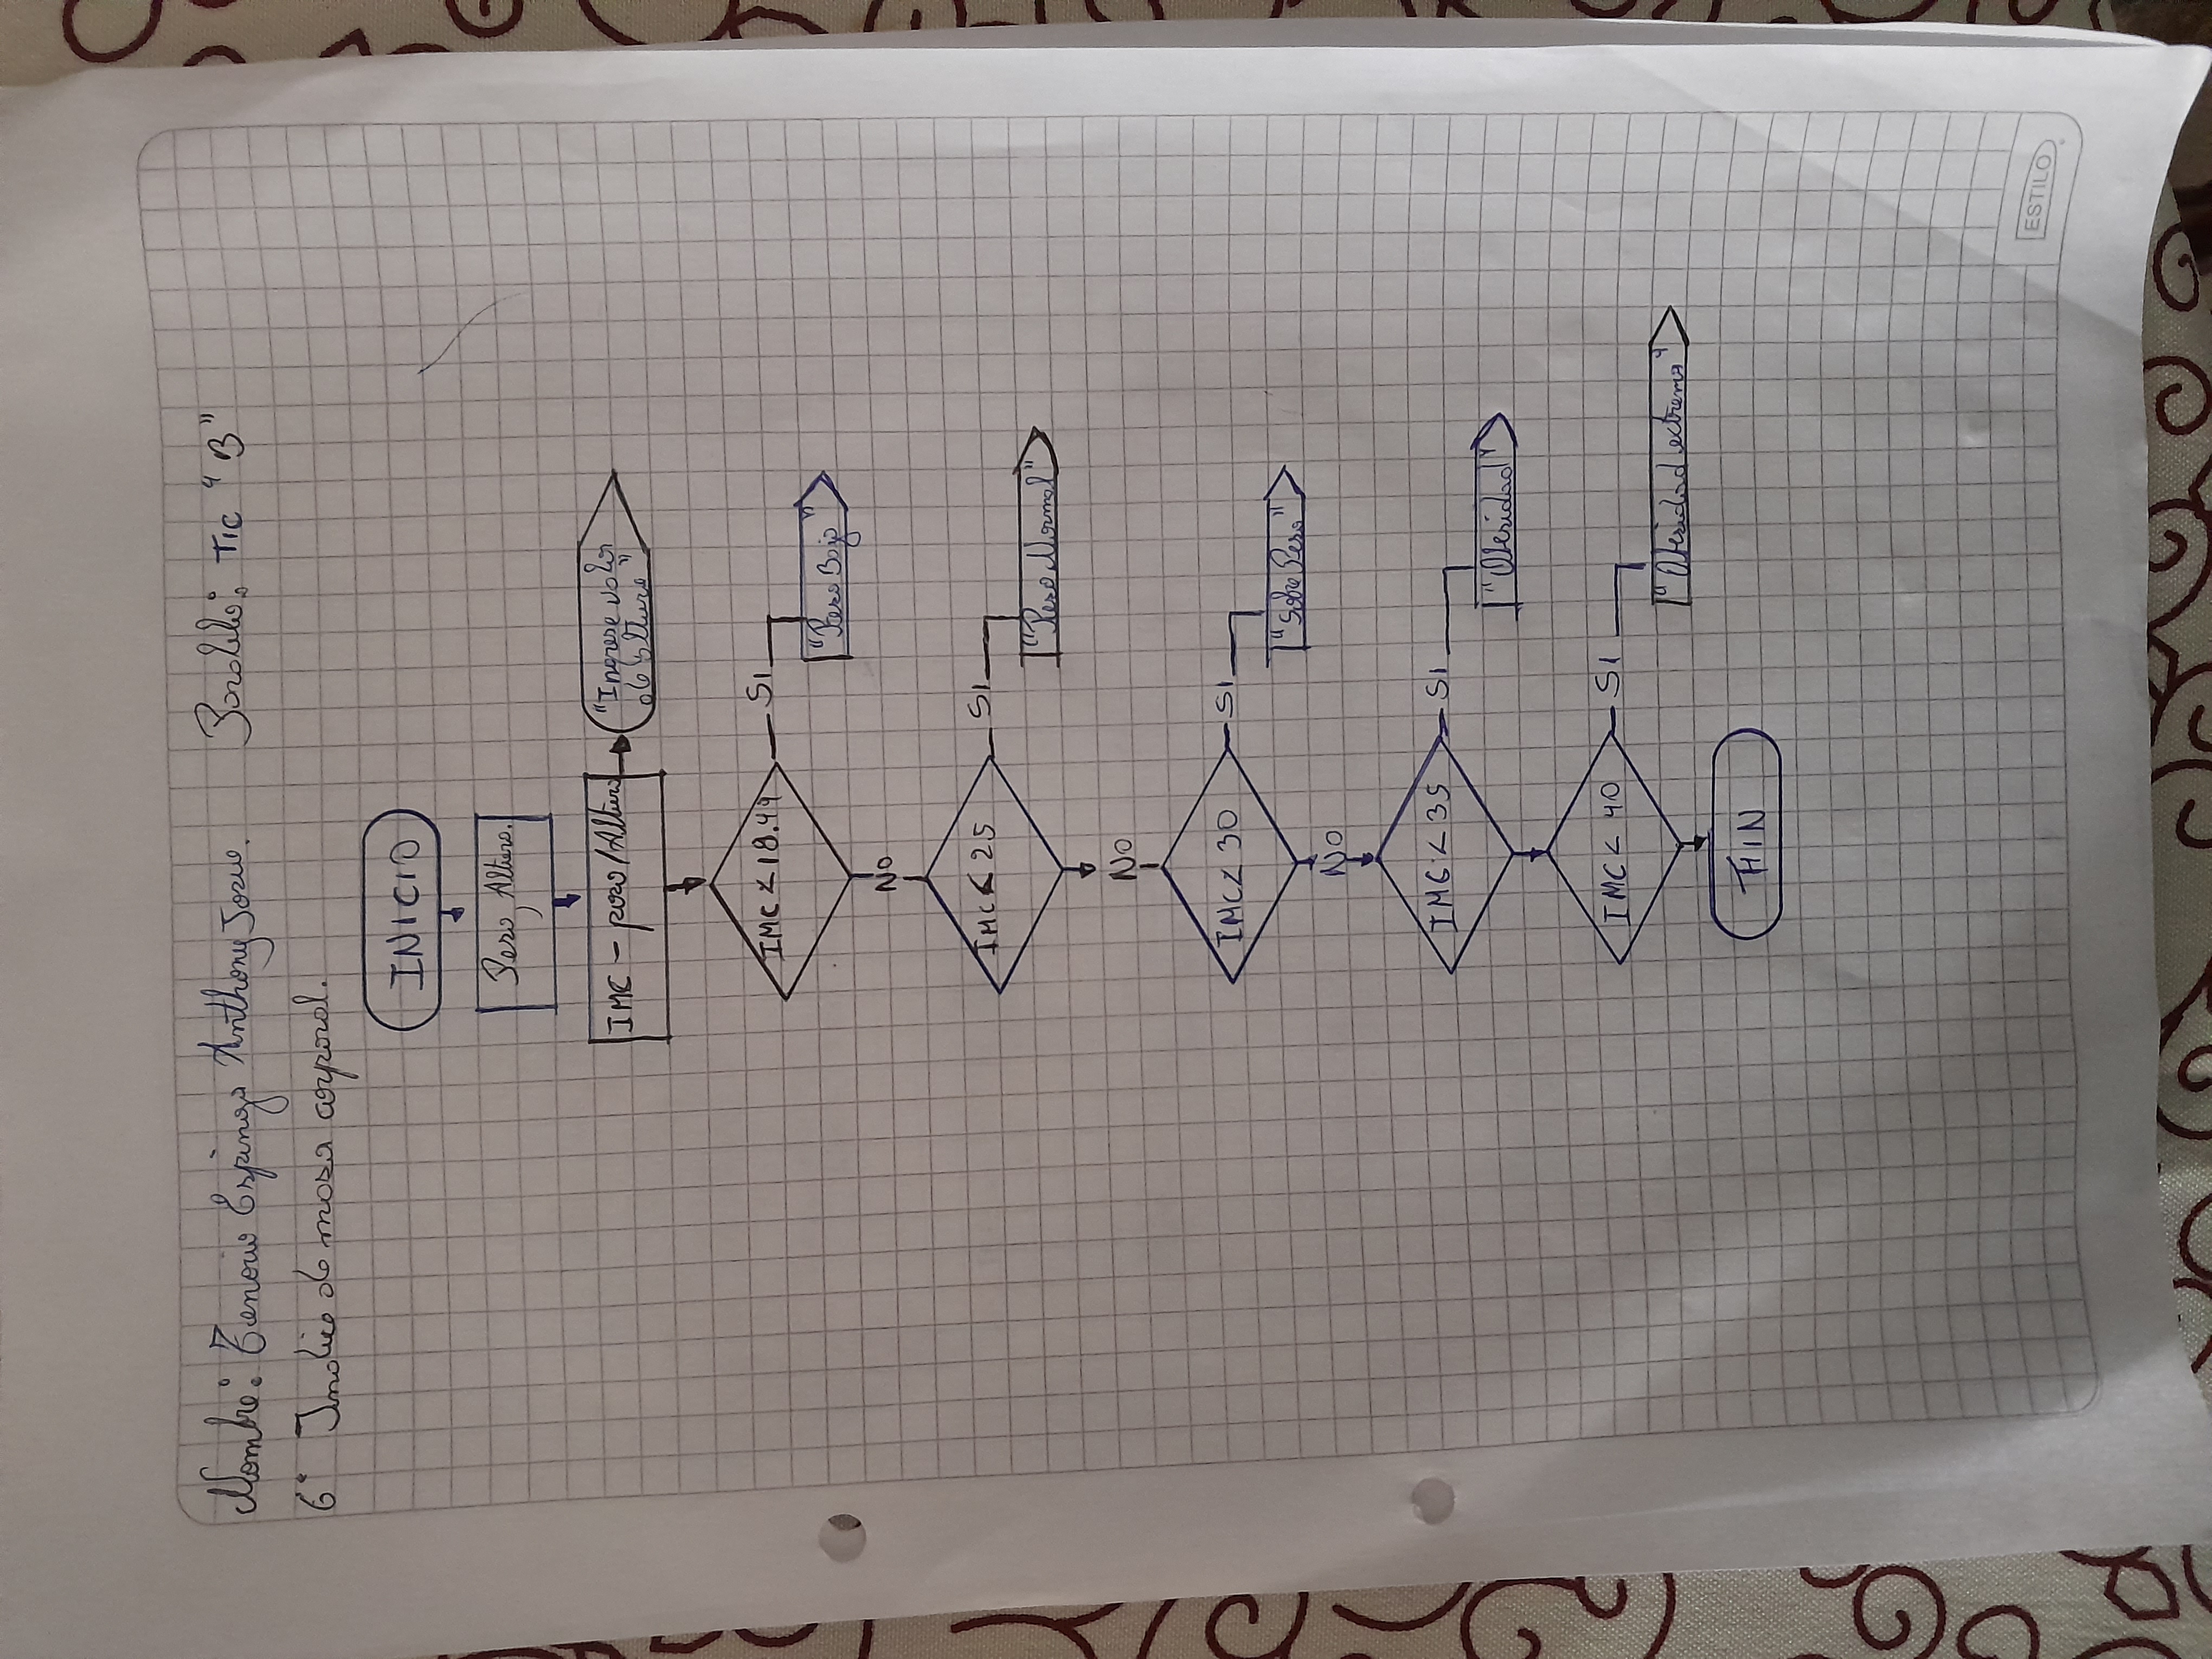 Nombre: Tenorio Espinga Anthony Josue. Paralelo: TIC "B"
6° Indice de masa corporal.
INICIO
Peso, Altura.
IMC - peso/Altura
"Ingrese valor
de altura"
IMC < 18.49
SI
"Peso Bajo"
NO
IMC < 25
SI
"Peso Normal"
NO
IMC < 30
SI
"Sobre Peso"
NO
IMC < 35
SI
"Obesidad"
IMC < 40
SI
"Obesidad extrema"
FIN
ESTILO